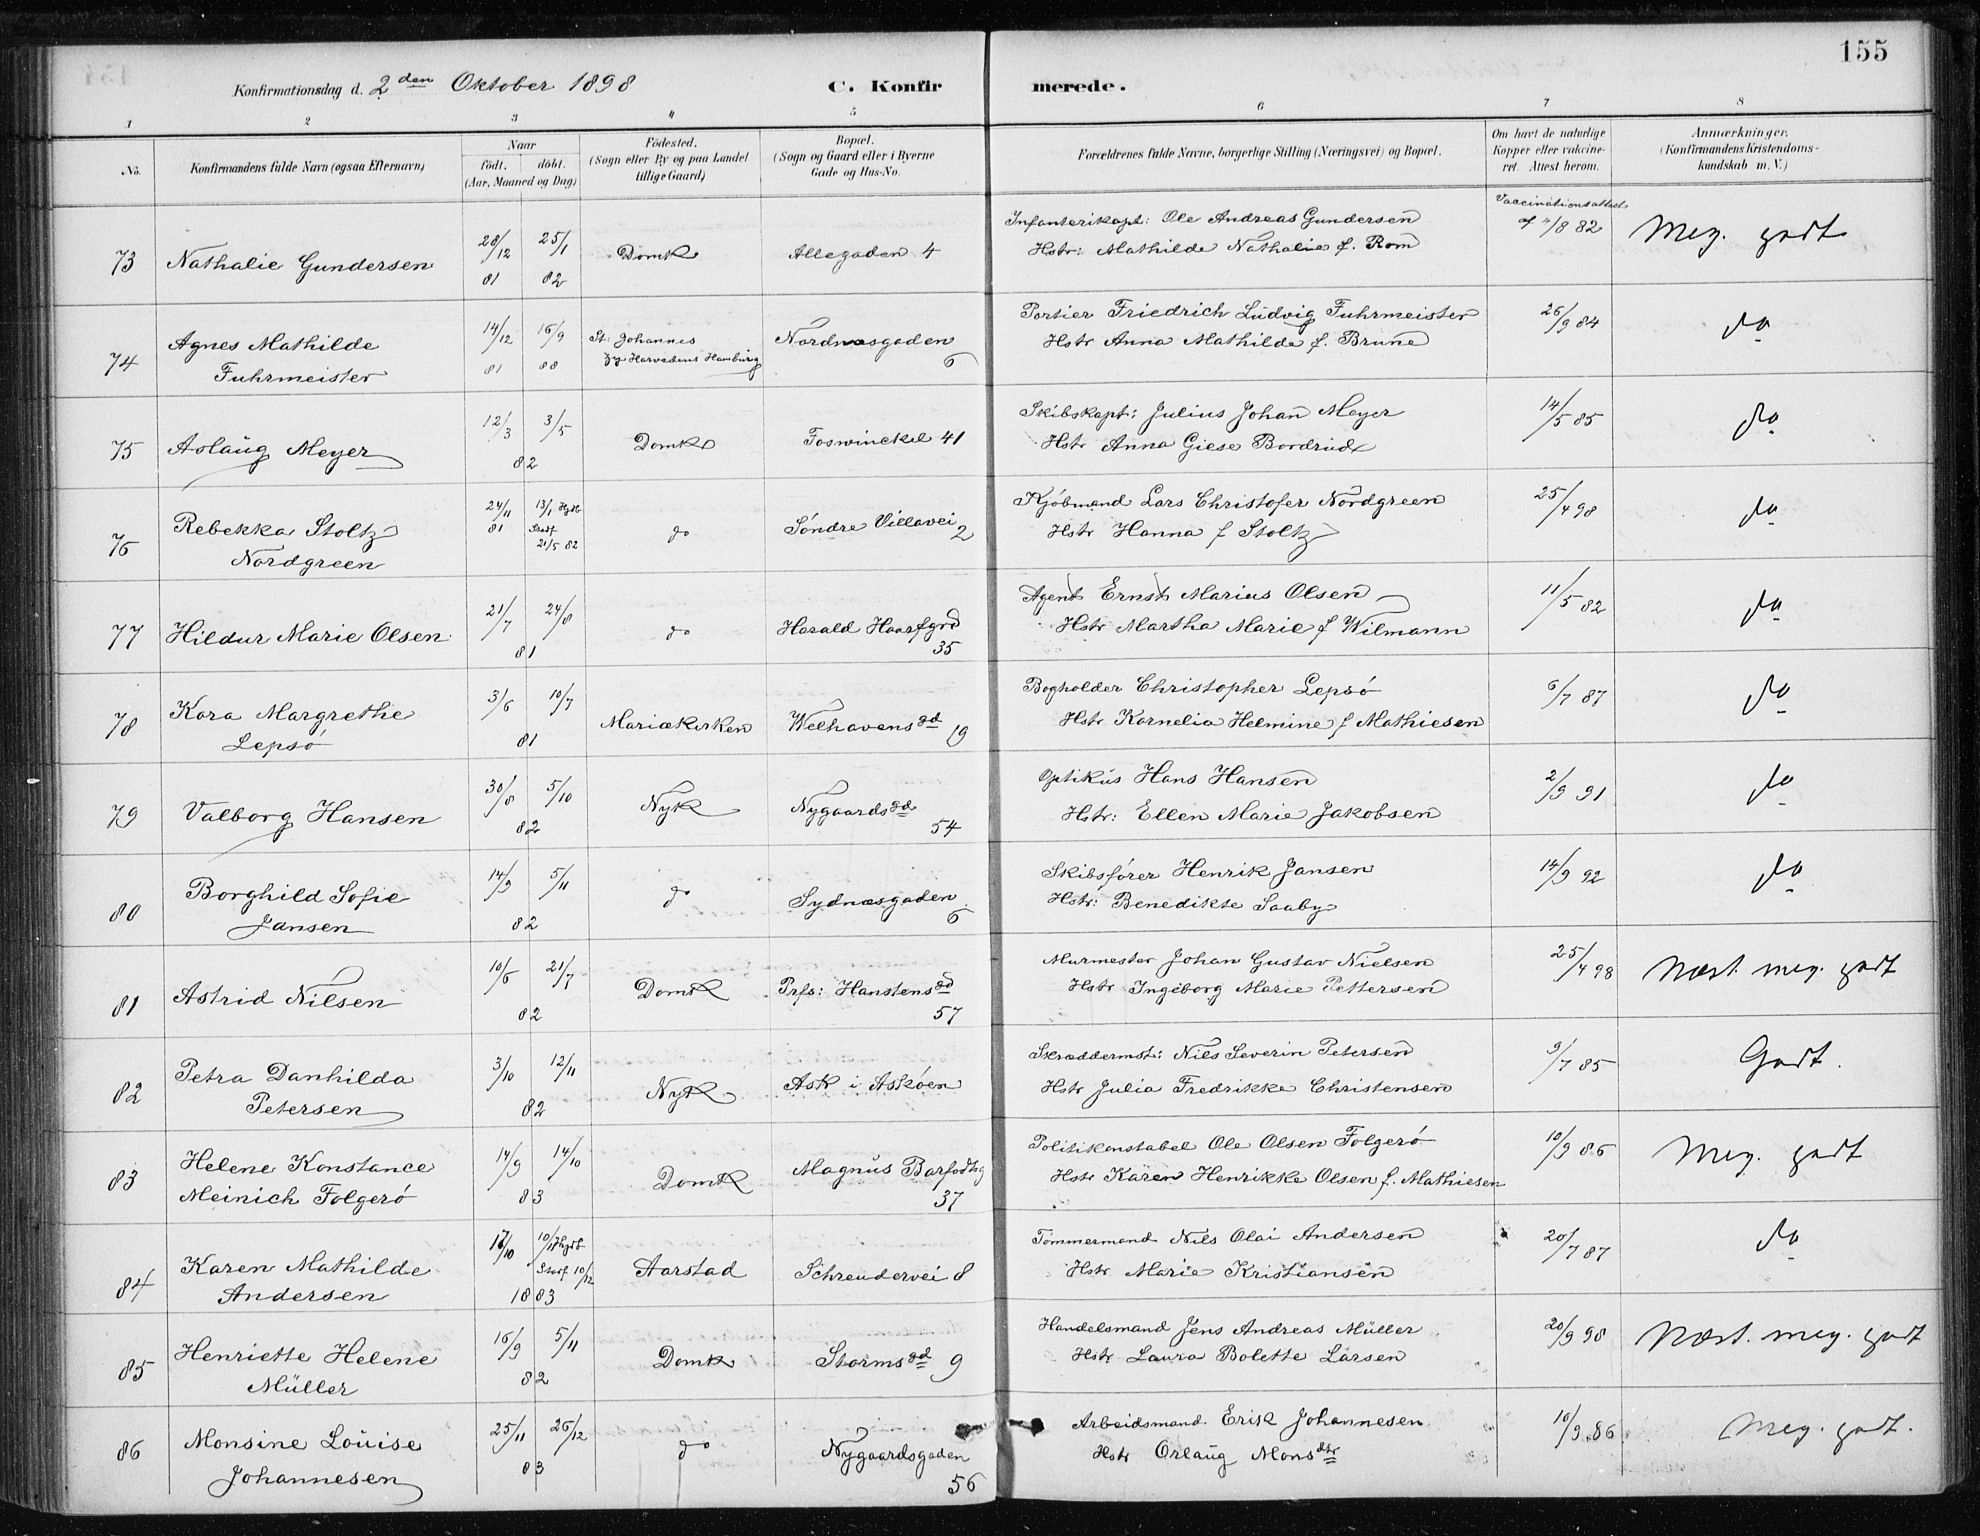 155
Konfirmationsdag d. 2den Oktober 1898 C. Konfirmerede.
1 2 3 4 5 6 7 8
No. Konfirmandens fulde Navn (ogsaa Efternavn) Naar födt. döbt. (Aar, Maaned og Dag) Födested. (Sogn eller By og paa Landet tillige Gaard) Bopæl. (Sogn og Gaard eller i Byerne Gade og Hus-No. Forældrenes fulde Navne, borgerlige Stilling (Næringsvei) og Bopæl. Om havt de naturlige Kopper eller vakcineret. Attest herom. Anmærkninger. (Konfirmandens Kristendomskundskab m. V.)
73 Nathalie Gundersen 28/12 81 25/1 82 Domk Allegaden 4 Infanterikapt: Ole Andreas Gundersen Vaccinationsattest Meg. godt
Hstr: Mathilde Nathalie f. Rom
74 Agnes Mathilde 14/12 81 16/9 88 St. Johannes Nordnæsgaden 6 Portier Friedrich Ludvig Fuhrmeister 26/9 84 do
Fuhrmeister Harvedens Hamburg Hstr Anna Mathilde f. Brune
75 Aslaug Meyer 12/3 3/5 82 Domk Foswinckel 41 Skibskapt: Julius Johan Meyer 14/5 85 do
Hstr Anna Giese Bordrud
76 Rebekka Stoltz 24/11 81 13/1 Hjdb Stadf 21/5 82 do Söndre Villavei 2 Kjöbmand Lars Christofer Nordgreen 25/4 98 do
Nordgreen Hstr Hanna f Stoltz
77 Hildur Marie Olsen 21/7 24/8 81 do Harald Haarfgrd 35 Agent Ernst Marius Olsen 11/5 82 do
Hstr Martha Marie f Wilmann
78 Kora Margrethe 3/6 10/7 81 Mariækirken Welhavensgd 19 Bogholder Christopher Lepsö 6/7 87 do
Lepsö Hstr Kornelia Helmine f Mathiesen
79 Valborg Hansen 30/8 5/10 82 Nyk Nygaardsgd 54 Optikus Hans Hansen 2/9 91 do
Hstr: Ellen Marie Jakobsen
80 Borghild Sofie 14/9 5/11 82 do Sydnæsgaden 6 Skibsförer Henrik Jansen 14/9 92 do
Jansen Hstr: Benedikte Saaby
81 Astrid Nilsen 10/6 21/7 82 Domk Prfs: Hanstensgd 57 Murmester Johan Gustav Nielsen 25/4 98 Næst. meg. godt
Hstr Ingeborg Marie Pettersen
82 Petra Danhilda 3/10 12/11 82 Nyk Ask i Asköen Skræddermst: Nils Severin Petersen 9/7 85 Godt.
Petersen Hstr Julia Fredrikke Christensen
83 Helene Konstance 14/9 14/10 83 Domk Magnus Barfodtsg 37 Politikonstabel Ole Olsen Folgerö 10/9 86 Meg. godt
Meinich Folgerö Hstr Karen Henrikke Olsen f. Mathiesen
84 Karen Mathilde 17/10 10/11 Hjdb Stadf 10/12 1883 Aarstad Schreudervei 8 Tömmermand Nils Olai Andersen 20/7 87 do
Andersen Hstr Marie Kristiansen
85 Henriette Helene 16/9 5/11 82 Domk Stormsgd 9 Handelsmand Jens Andreas Müller 20/9 98 Næst. meg. godt
Müller Hstr Laura Bolette Larsen
86 Monsine Louise 25/11 26/12 83 do Nygaardsgaden 56 Arbeidsmand Erik Johannesen 10/9 86 Meg. godt.
Johannesen Hstr Orlaug Monsdtr